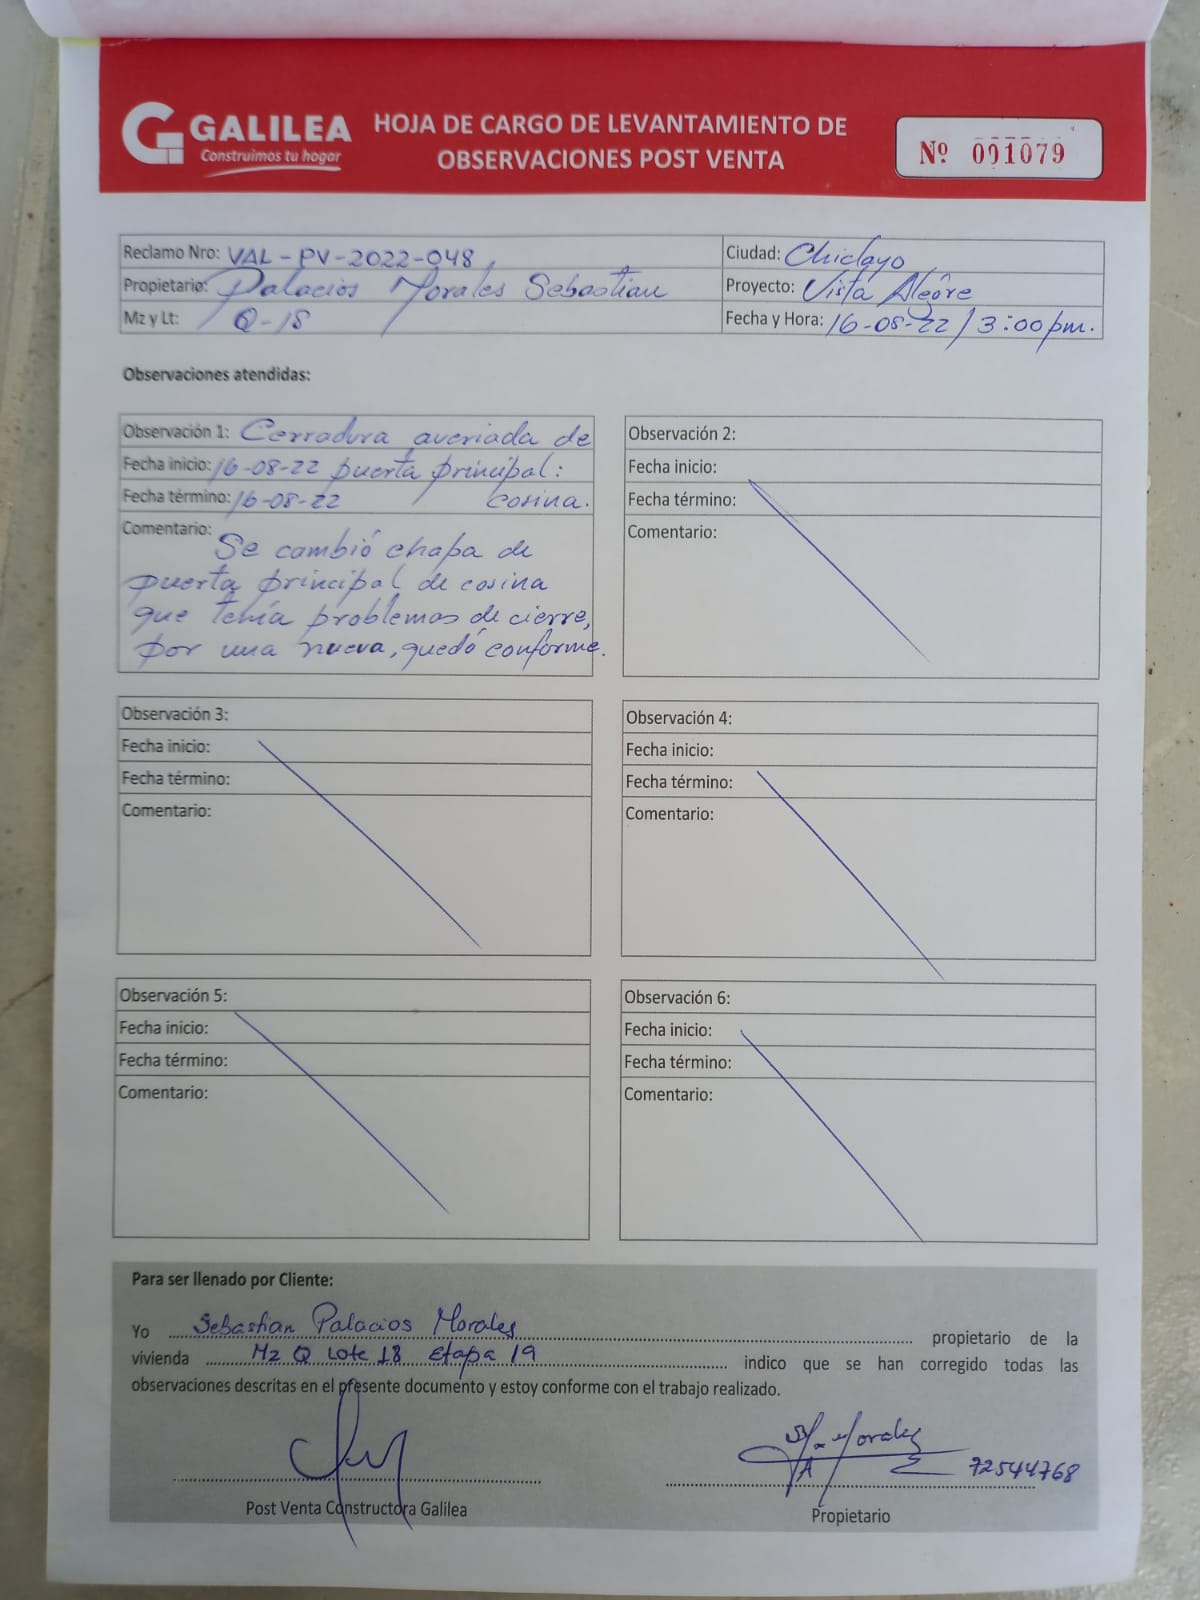 GALILEA
Construimos tu hogar
HOJA DE CARGO DE LEVANTAMIENTO DE
OBSERVACIONES POST VENTA
Nº 001079
Reclamo Nro: VAL-PV-2022-048
Ciudad: Chiclayo
Propietario: Palacios Morales Sebastian
Proyecto: Vista Alegre
Mz y Lt: Q-18
Fecha y Hora: 16-08-22 / 3:00 pm.
Observaciones atendidas:
Observación 1: Cerradura averiada de
Fecha inicio: 16-08-22 puerta principal:
Fecha término: 16-08-22 cosina.
Comentario: Se cambió chapa de
puerta principal de cosina
que tenía problemas de cierre,
por una nueva, quedó conforme.
Observación 2:
Fecha inicio:
Fecha término:
Comentario:
Observación 3:
Fecha inicio:
Fecha término:
Comentario:
Observación 4:
Fecha inicio:
Fecha término:
Comentario:
Observación 5:
Fecha inicio:
Fecha término:
Comentario:
Observación 6:
Fecha inicio:
Fecha término:
Comentario:
Para ser llenado por Cliente:
Yo Sebastian Palacios Morales propietario de la
vivienda Mz Q Lote 18 Etapa 19 indico que se han corregido todas las
observaciones descritas en el presente documento y estoy conforme con el trabajo realizado.
72544768
Post Venta Constructora Galilea
Propietario